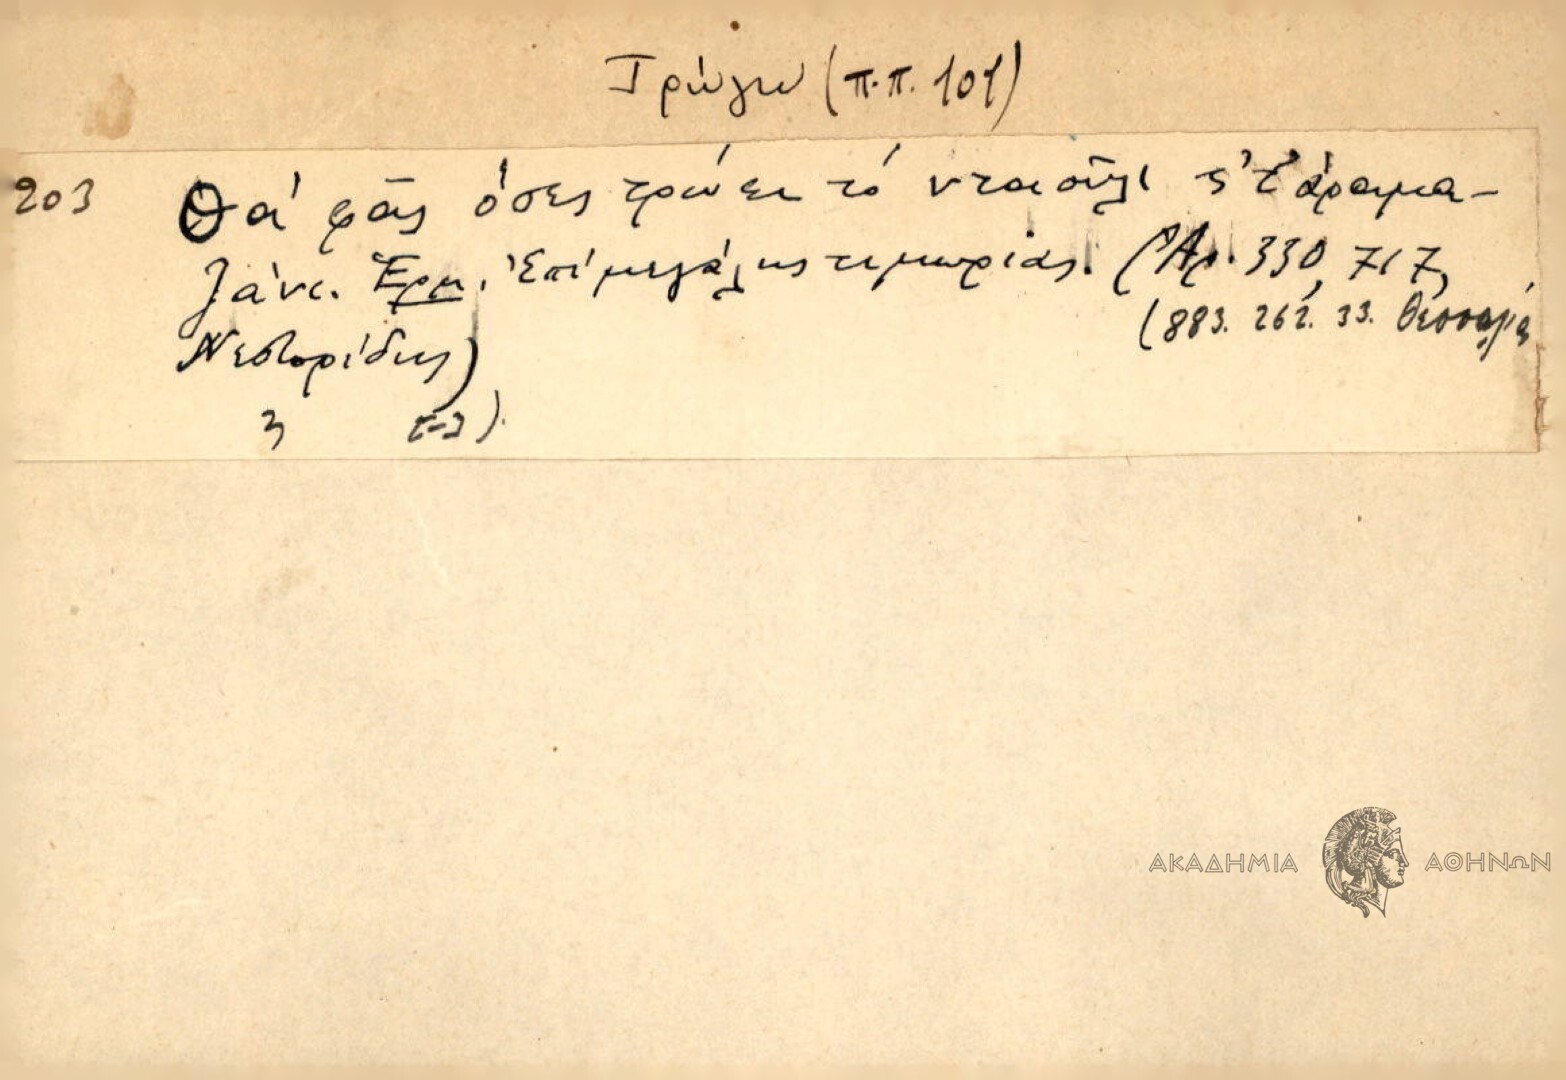 Τρώγω (π.π. 101)
203 Θά φᾶς ὅσες τρώει τό νταούλι σ' τ' άραμα-
ζάνι. Ἑρμ. Ἐπί μεγάλης τιμωρίας. (Ἀρ. 330, 717,
Νεστορίδης)
(883. 262. 33.
ΑΚΑΔΗΜΙΑ ΑΘΗΝΩΝ